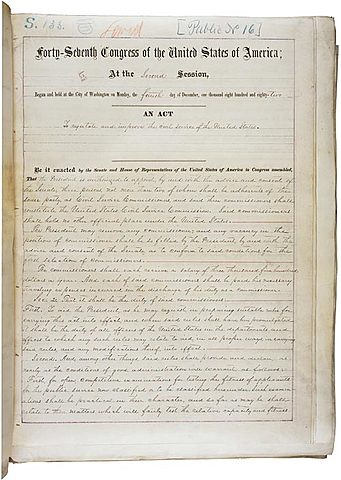 S. 133.
[Public No 16]
Forty-Seventh Congress of the United States of America;
At the Second Session,
Begun and held at the City of Washington on Monday, the fourth day of December, one thousand eight hundred and eighty-two
AN ACT
To regulate and improve the civil service of the United States.
Be it enacted by the Senate and House of Representatives of the United States of America in Congress assembled,
That the President is authorized to appoint, by and with the advice and consent of
the Senate, three persons, not more than two of whom shall be adherents of the
same party, as Civil Service Commissioners, and said three commissioners shall
constitute the United States Civil Service Commission. Said commissioners
shall hold no other official place under the United States.
The President may remove any commissioner; and any vacancy in the
position of commissioner shall be so filled by the President, by and with the
advice and consent of the Senate, as to conform to said conditions for the
first selection of commissioners.
The commissioners shall each receive a salary of three thousand five hundred
dollars a year. And each of said commissioners shall be paid his necessary
traveling expenses incurred in the discharge of his duty as a commissioner.
Sec. 2. That it shall be the duty of said commissioners:
First, To aid the President, as he may request, in preparing suitable rules for
carrying this act into effect, and when said rules shall have been promulgated
it shall be the duty of all officers of the United States in the departments and
offices to which any such rules may relate to aid, in all proper ways, in carrying
said rules, and any modifications thereof, into effect.
Second, And, among other things, said rules shall provide and declare, as
nearly as the conditions of good administration will warrant, as follows:
First, for open, competitive examinations for testing the fitness of applicants
for the public service now classified or to be classified hereunder. Such examin-
ations shall be practical in their character, and so far as may be shall
relate to those matters which will fairly test the relative capacity and fitness